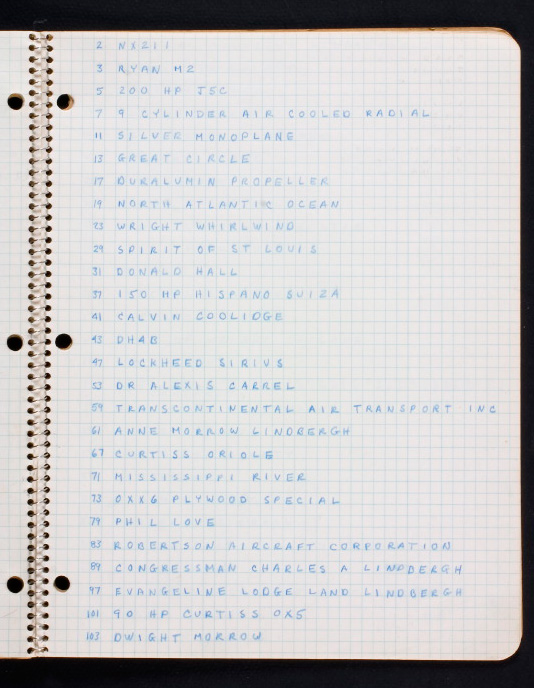 2 NX211
3 RYAN M2
5 200 HP J5C
7 9 CYLINDER AIR COOLED RADIAL
11 SILVER MONOPLANE
13 GREAT CIRCLE
17 DURALUMIN PROPELLER
19 NORTH ATLANTIC OCEAN
23 WRIGHT WHIRLWIND
29 SPIRIT OF ST LOUIS
31 DONALD HALL
37 150 HP HISPANO SUIZA
41 CALVIN COOLIDGE
43 DH4B
47 LOCKHEED SIRIUS
53 DR ALEXIS CARREL
59 TRANSCONTINENTAL AIR TRANSPORT INC
61 ANNE MORROW LINDBERGH
67 CURTISS ORIOLE
71 MISSISSIPPI RIVER
73 OXX6 PLYWOOD SPECIAL
79 PHIL LOVE
83 ROBERTSON AIRCRAFT CORPORATION
89 CONGRESSMAN CHARLES A LINDBERGH
97 EVANGELINE LODGE LAND LINDBERGH
101 90 HP CURTISS OX5
103 DWIGHT MORROW